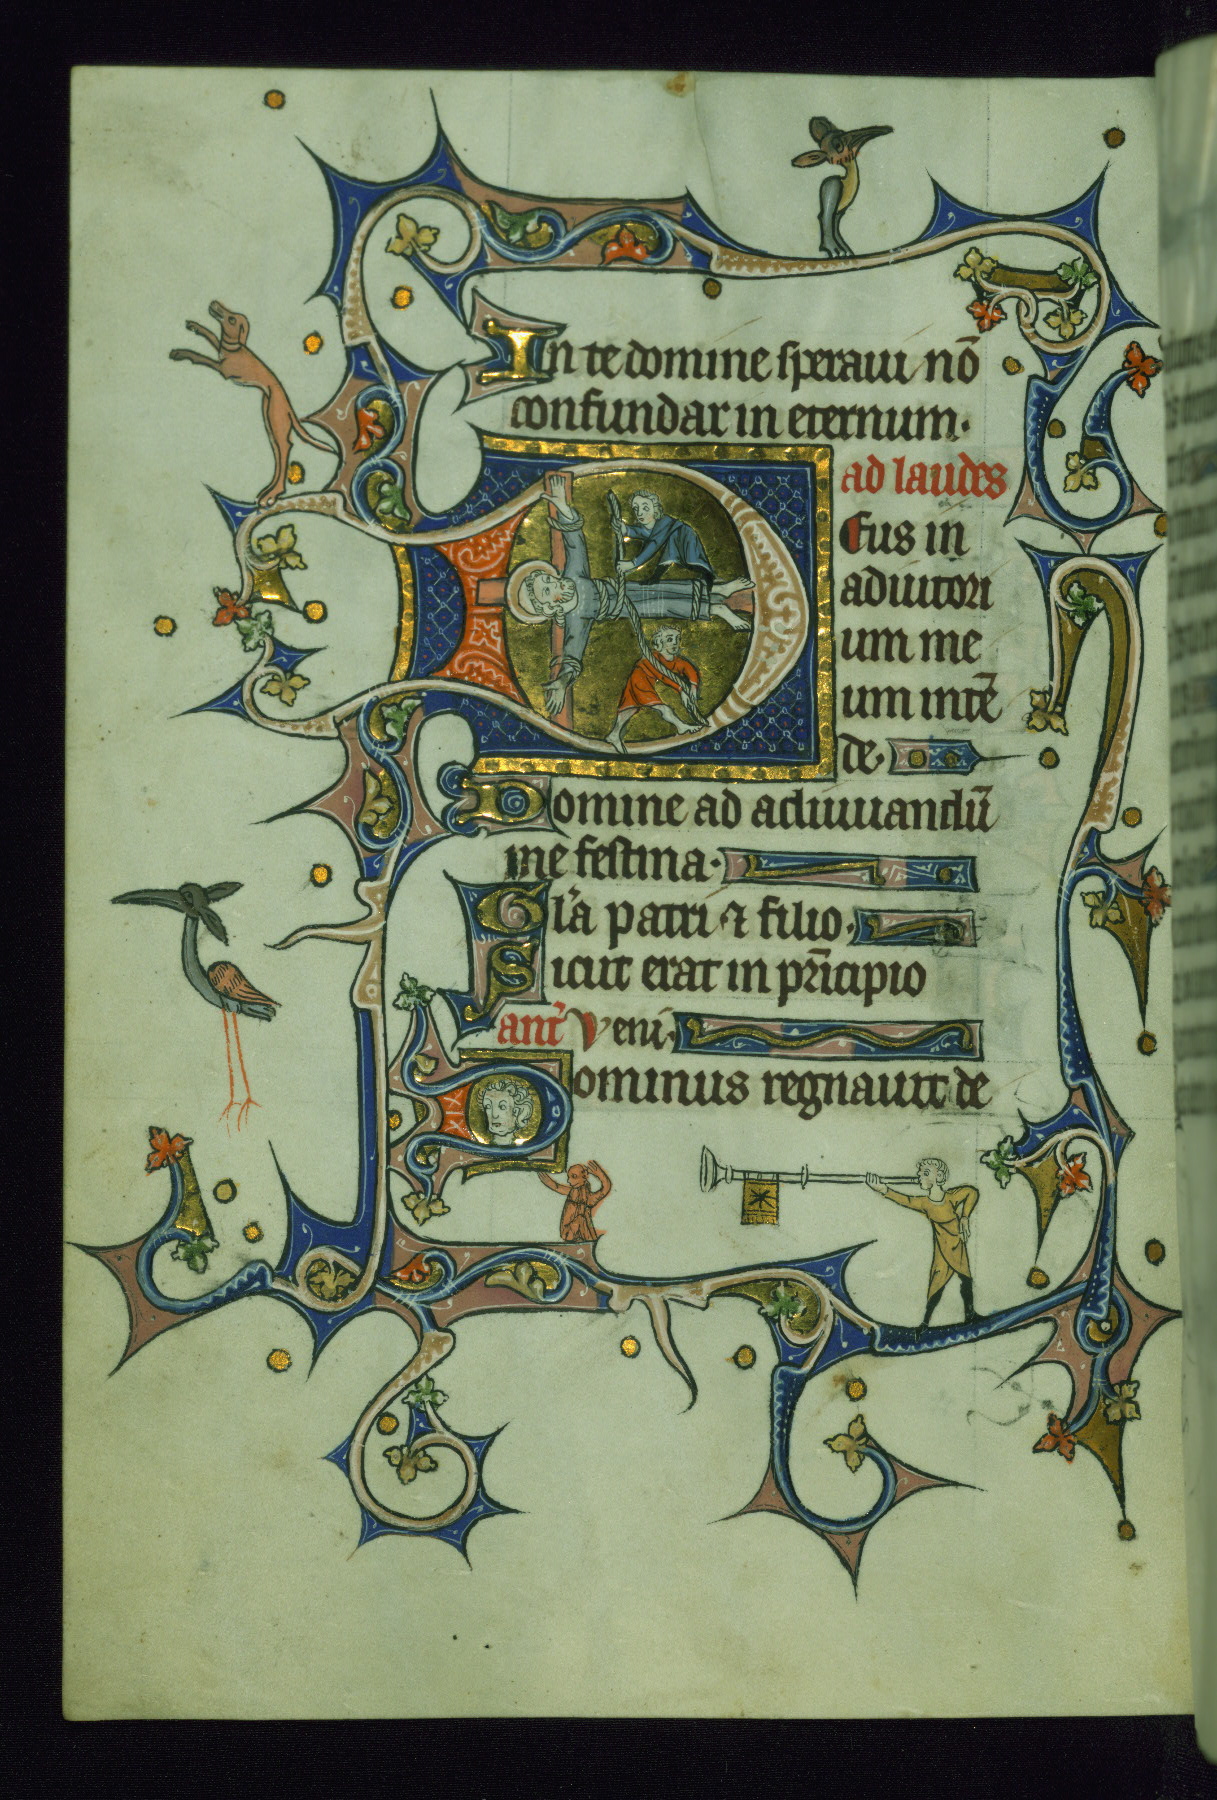 In te domine speraui nō
confundar in eternum·
ad laudes
Deus in
adiutori
um me
um intē
de·
Domine ad adiuuandū
me festina·
Gl'a patri ⁊ filio·
Sicut erat in prīcipio
ant' Veni·
Dominus regnauit de